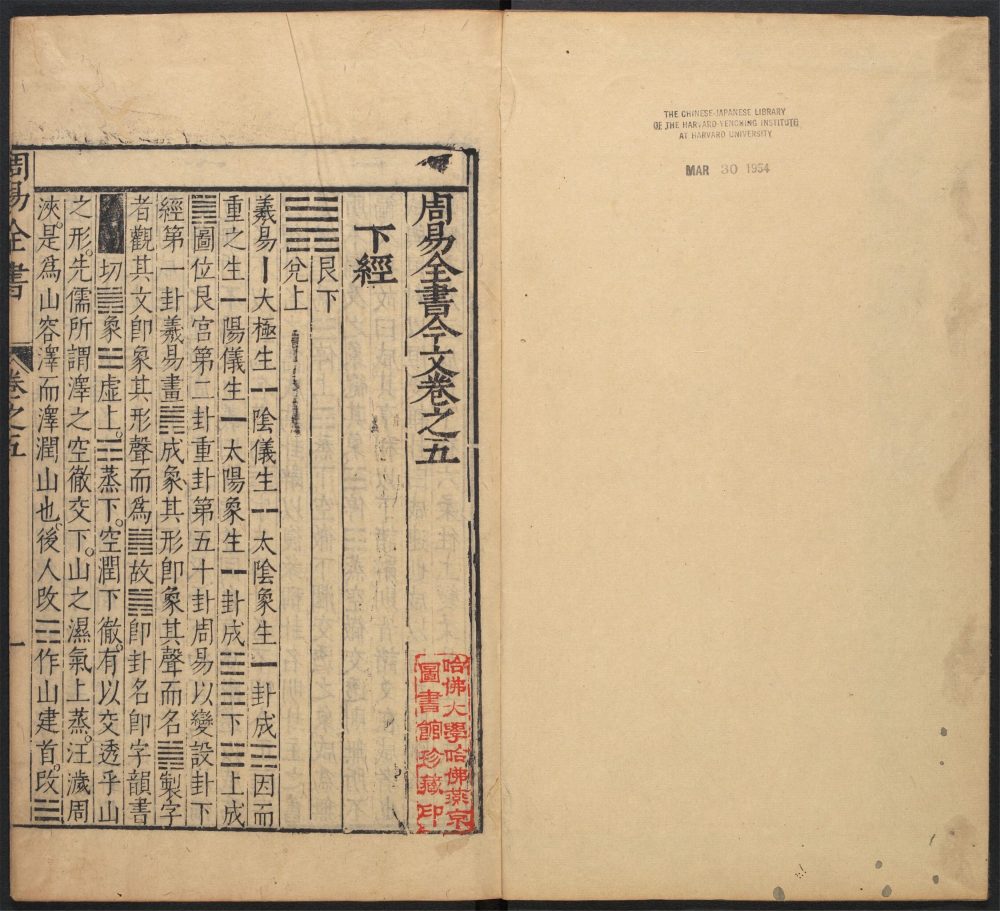 THE CHINESE-JAPANESE LIBRARY
OF THE HARVARD-YENCHING INSTITUTE
AT HARVARD UNIVERSITY
MAR 30 1954
周易全書今文卷之五
哈佛大學哈佛燕京
圖書館珍藏印
下經
䷞ 艮下
兌上
羲易丨大極生⚋陰儀生⚋太陰象生⚊卦成☶因而
重之生⚊陽儀生⚊太陽象生⚋卦成☱☱下☶上成
䷞圖位艮宮第二卦重卦第五十卦周易以變設卦下
經第一卦羲易畫䷞成象其形卽象其聲而名䷞製字
者觀其文卽象其形聲而爲䷞故䷞卽卦名卽字韻書
切䷞象☱虛上。☶蒸下。空潤下徹。有以交透乎山
之形。先儒所謂澤之空徹交下。山之濕氣上蒸。汪濊周
浹。是爲山容澤而澤潤山也。後人改☶作山建首。改☱
周易全書
卷之五
一